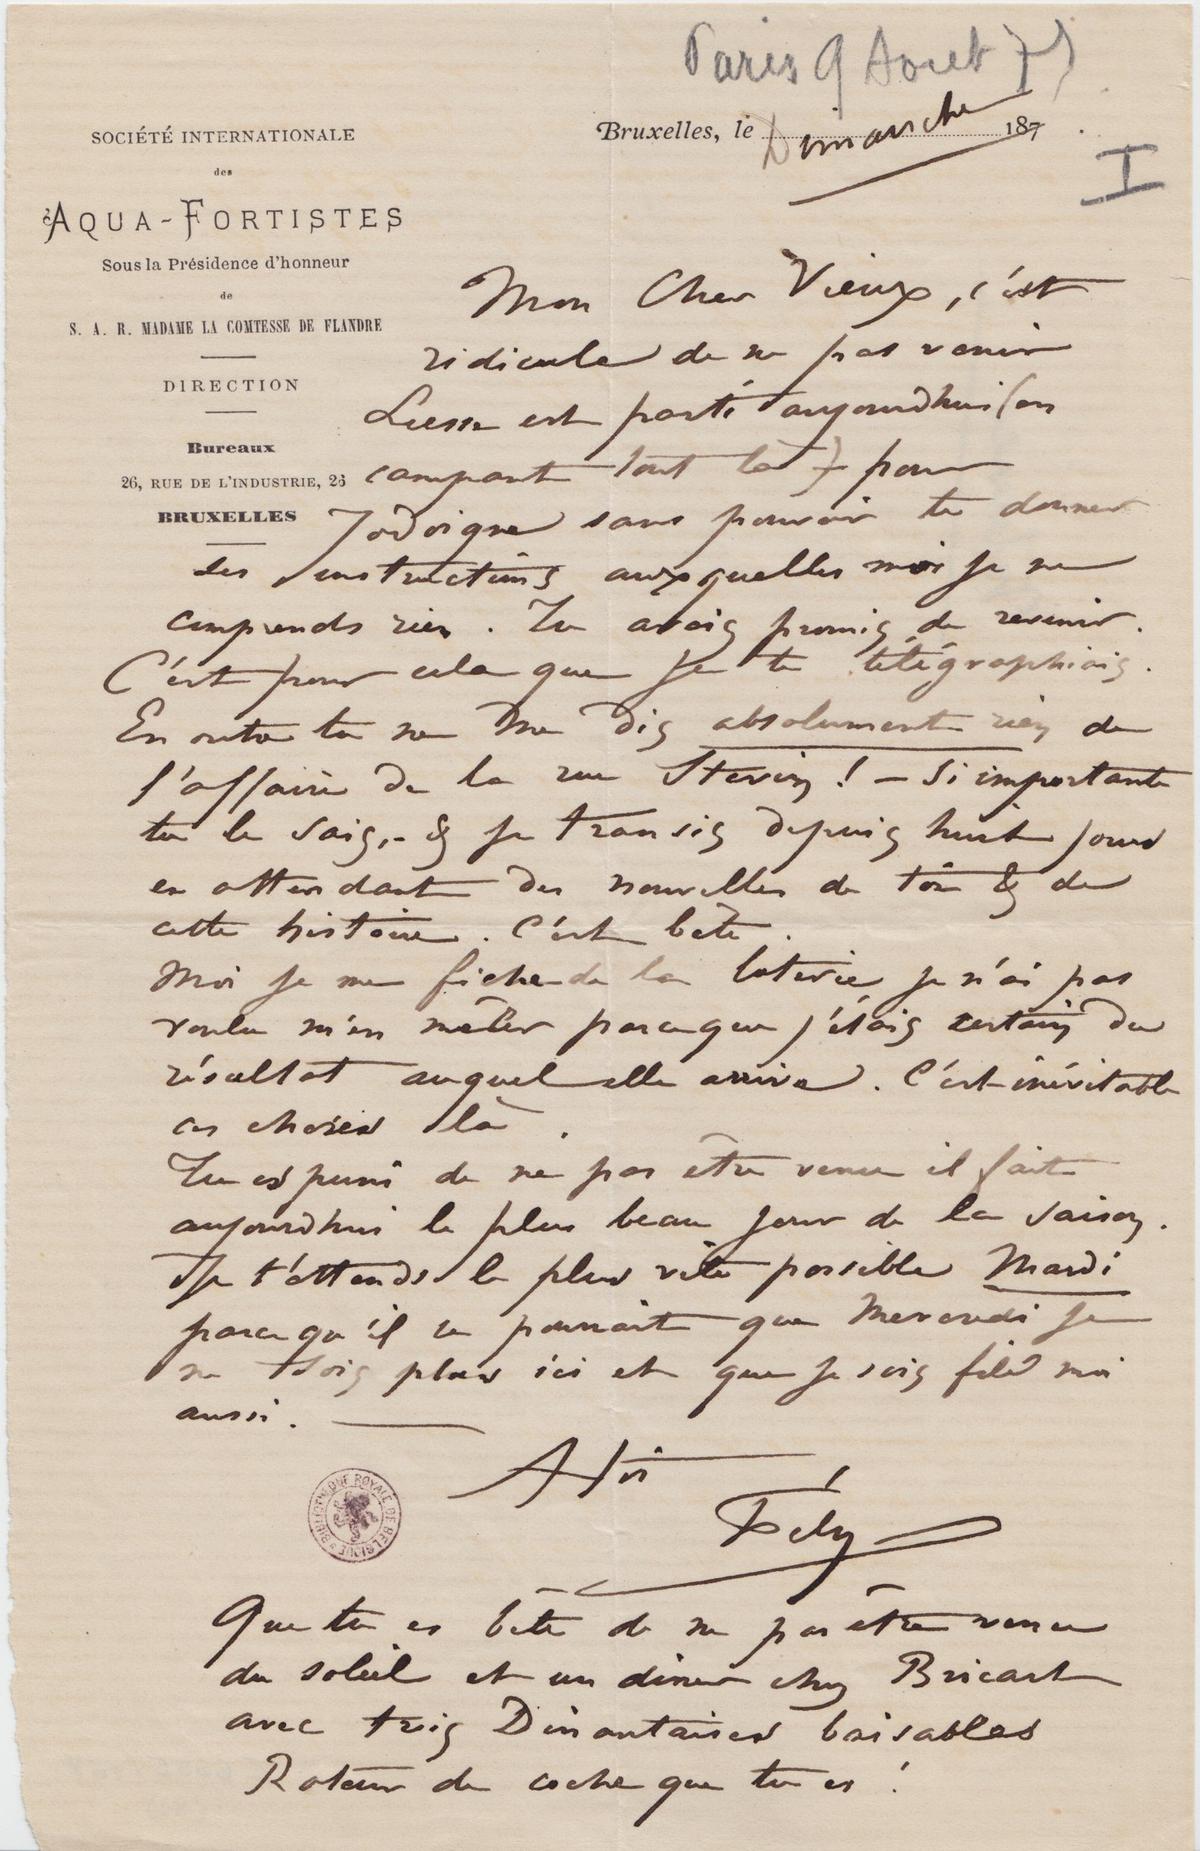 Paris 9 Aout 75
SOCIÉTÉ INTERNATIONALE
des
AQUA-FORTISTES
Sous la Présidence d'honneur
de
S. A. R. MADAME LA COMTESSE DE FLANDRE
DIRECTION
Bureaux
26, RUE DE L'INDUSTRIE, 26
BRUXELLES
Bruxelles, le Dimanche 187
I
Mon Cher Vieux, c'est
ridicule de ne pas venir
Liesse est parti aujourdhui (en
campant tout là) pour
Jodoigne sans pouvoir te donner
ses instructions auxquelles moi je ne
comprends rien. Tu avais promis de revenir.
C'est pour cela que je te télégraphiais.
En outre tu ne me dis absolument rien de
l'affaire de la rue Stevin ! – Si importante
tu le sais, – & je transis depuis huit jours
en attendant des nouvelles de toi & de
cette histoire. C'est bête.
Moi je me fiche de la loterie je n'ai pas
voulu m'en mêler parceque j'étais certain du
résultat auquel elle arrive. C'est inévitable
ces choses là.
Tu es puni de ne pas être venu il fait
aujourdhui le plus beau jour de la saison.
Je t'attends le plus vite possible Mardi
parcequ'il se pourrait que Mercredi je
ne sois plus ici et que je sois filé moi
aussi.
A toi
Fély
BIBLIOTHÈQUE ROYALE DE BELGIQUE
Que tu es bête de ne pas être venu
du soleil et un diner chez Bricart
avec trois Dinantaises baisables
Roteur de coche que tu es !